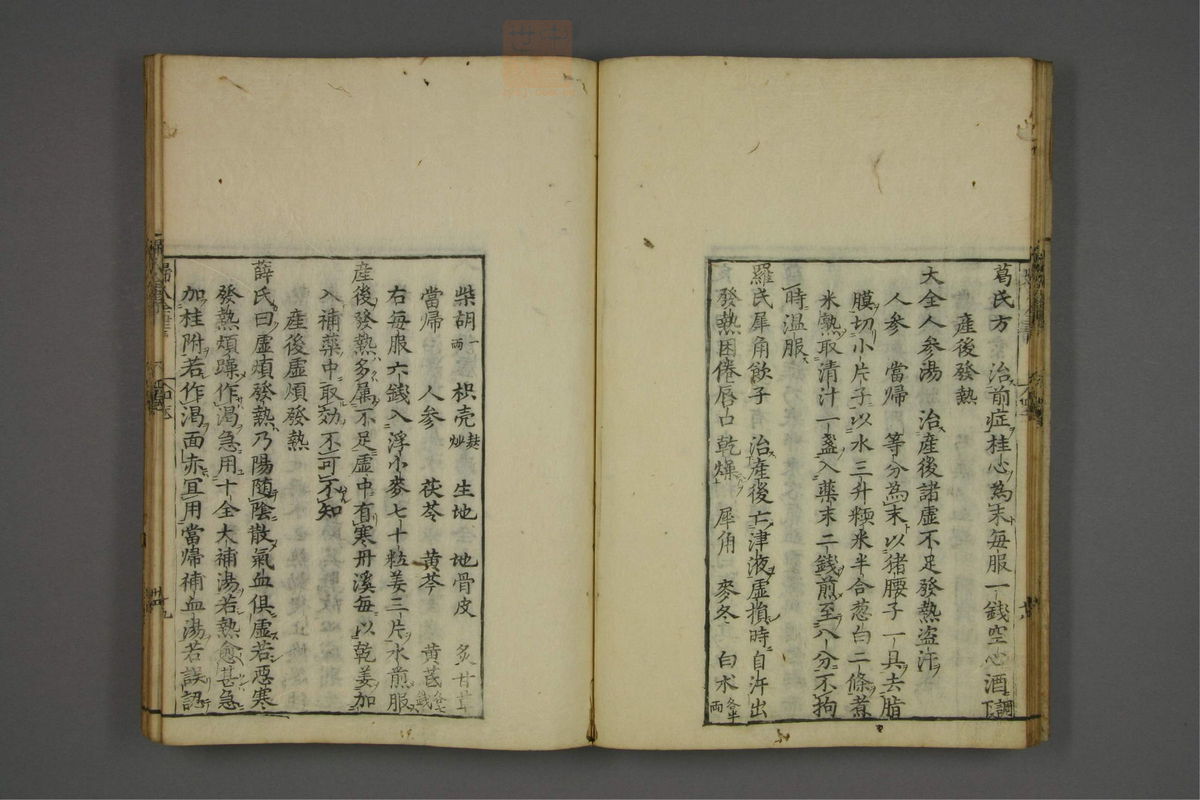 葛氏方　治前症桂心為末毎服一錢空心酒調下
産後發熱
大全人参湯　治産後諸虚不足發熱盗汗
人参　當帰　等分為末以猪腰子一具去脂
膜切小片子以水三升糯米半合葱白二條煮
米熟取清汁一盞入藥末二錢煎至八分不拘
時温服
羅氏犀角飲子　治産後亡津液虚損時自汗出
發熱困倦唇口乾燥　犀角　麥冬　白朮各半兩
柴胡一兩　枳壳麸炒　生地　地骨皮　炙甘草
當帰　人参　茯苓　黄芩　黄芪各七錢
右毎服六錢入浮小麥七十粒姜三片水煎服
産後發熱多属不足虚中有寒丹溪毎以乾姜加
入補藥中取効不可不知
産後虚煩發熱
薛氏曰虚煩發熱乃陽随陰散氣血俱虚若惡寒
發熱煩躁作渇急用十全大補湯若熱愈甚急
加桂附若作渇面赤冝用當帰補血湯若誤認